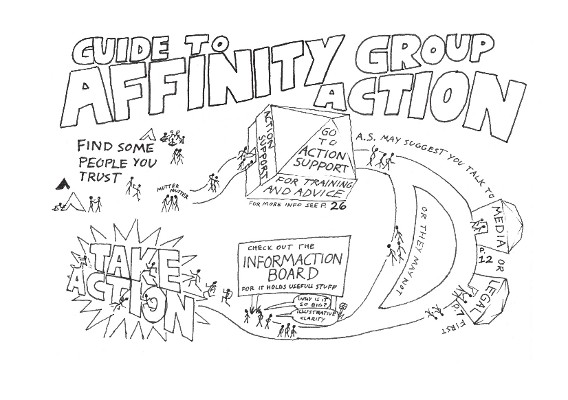 GUIDE TO
AFFINITY GROUP
ACTION
FIND SOME
PEOPLE YOU
TRUST
MUTTER
MUTTER
ACTION
SUPPORT
GO
TO
ACTION
SUPPORT
FOR TRAINING
AND ADVICE
FOR MORE INFO SEE P. 26
A.S. MAY SUGGEST YOU TALK TO
MEDIA OR
P.
12
LEGAL
FIRST
OR THEY MAY NOT
CHECK OUT THE
INFORMACTION
BOARD
FOR IT HOLDS USEFUL STUFF
WHY IS IT
SO BIG?
ILLUSTRATIVE
CLARITY
TAKE
ACTION